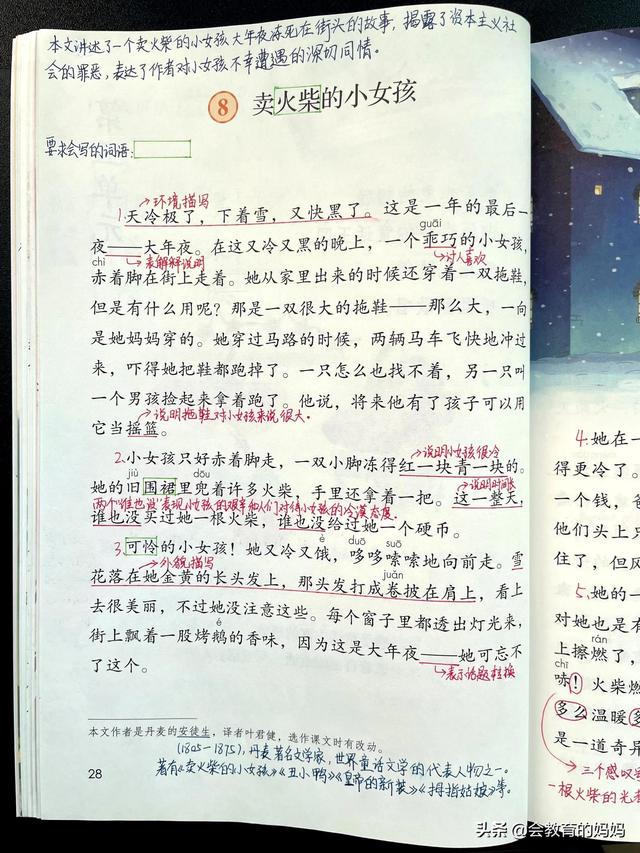 本文讲述了一个卖火柴的小女孩大年夜冻死在街头的故事，揭露了资本主义社
会的罪恶，表达了作者对小女孩不幸遭遇的深切同情。
8 卖火柴的小女孩
要求会写的词语：
→环境描写
1.天冷极了，下着雪，又快黑了。这是一年的最后一
guāi
夜——大年夜。在这又冷又黑的晚上，一个乖巧的小女孩，
chì
→表解释说明
→讨人喜欢
赤着脚在街上走着。她从家里出来的时候还穿着一双拖鞋，
但是有什么用呢？那是一双很大的拖鞋——那么大，一向
是她妈妈穿的。她穿过马路的时候，两辆马车飞快地冲过
来，吓得她把鞋都跑掉了。一只怎么也找不着，另一只叫
一个男孩捡起来拿着跑了。他说，将来他有了孩子可以用
→说明拖鞋对小女孩来说很大。
它当摇篮。
→说明小女孩很冷
2.小女孩只好赤着脚走，一双小脚冻得红一块青一块的。
jiù dōu
→说明时间长
她的旧围裙里兜着许多火柴，手里还拿着一把。这一整天，
两个"谁也没"表现小女孩的艰辛和人们对待小女孩的冷漠态度。
谁也没买过她一根火柴，谁也没给过她一个硬币。
duō suō
3.可怜的小女孩！她又冷又饿，哆哆嗦嗦地向前走。雪
→外貌描写
juǎn
花落在她金黄的长头发上，那头发打成卷披在肩上，看上
去很美丽，不过她没注意这些。每个窗子里都透出灯光来，
é
街上飘着一股烤鹅的香味，因为这是大年夜——她可忘不
了这个。
→表示话题转换
本文作者是丹麦的安徒生，译者叶君健，选作课文时有改动。
(1805—1875)，丹麦著名文学家，世界童话文学的代表人物之一。
著有《卖火柴的小女孩》《丑小鸭》《皇帝的新装》《拇指姑娘》等。
28
4.她在一
得更冷了。
一个钱，爸
他们头上只
住了，但风
5.她的一
对她也是有
rán
上擦燃了，
chī
哧！火柴燃
多么温暖多
是一道奇异
→三个感叹
一根火柴的光
头条 @会教育的妈妈